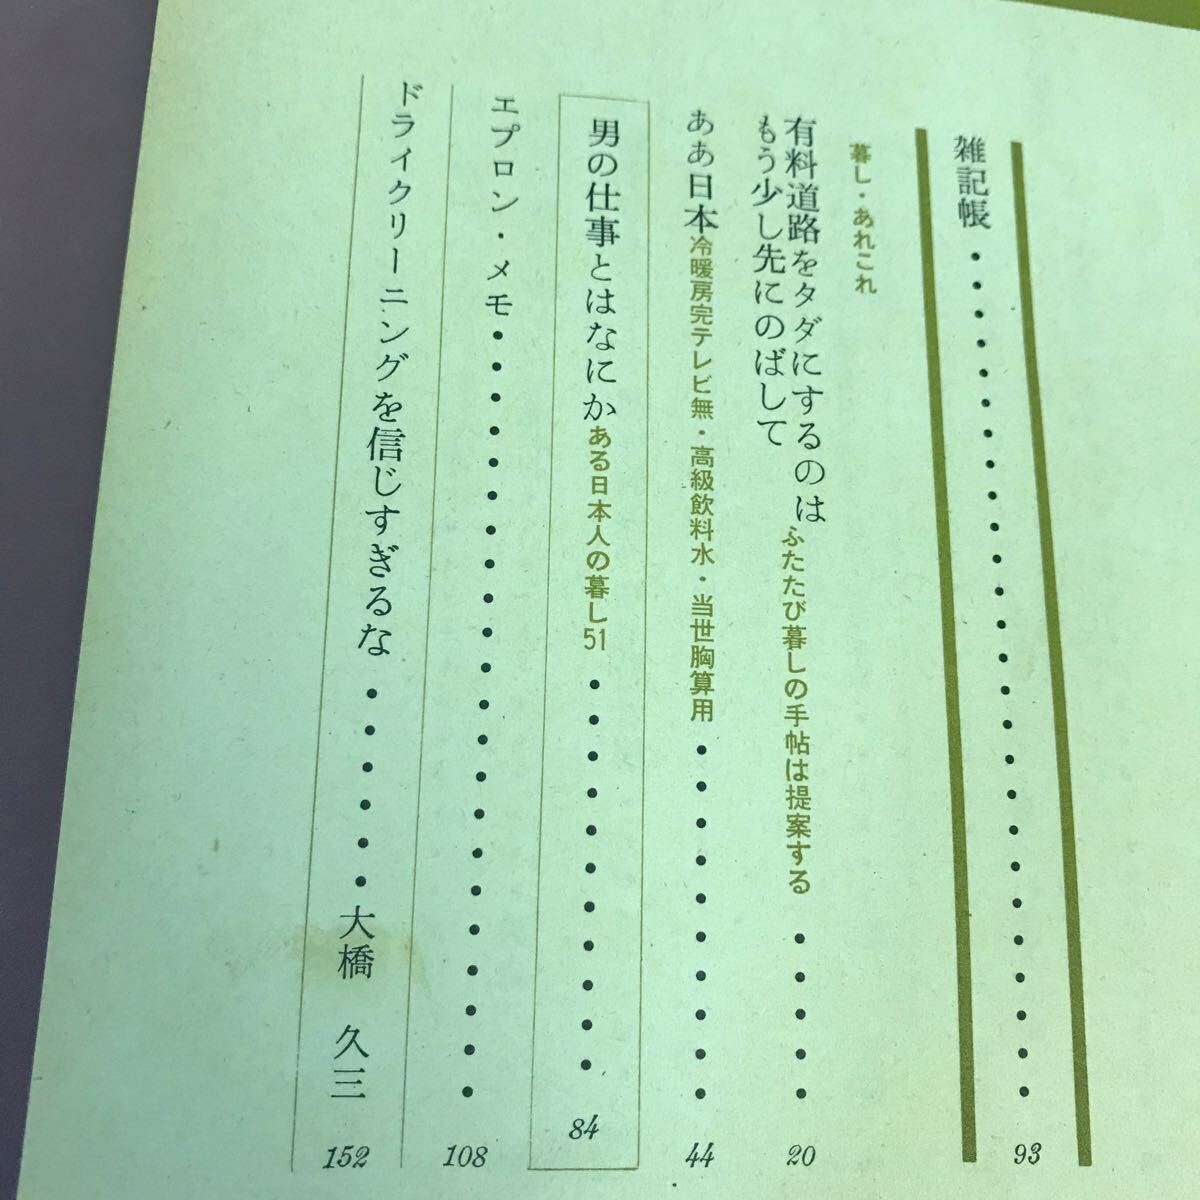 雑記帳・・・・・・・・・・・・・・・・・・・・・・93
暮し・あれこれ
有料道路をタダにするのは
もう少し先にのばして
ふたたび暮しの手帖は提案する・・・・・20
ああ日本 冷暖房完テレビ無・高級飲料水・当世胸算用・・・・・・・・・・44
男の仕事とはなにか ある日本人の暮し51・・・・・・・・・・・84
エプロン・メモ・・・・・・・・・・・・・・・・・・・・・・108
ドライクリーニングを信じすぎるな・・・・・・大橋 久三 152